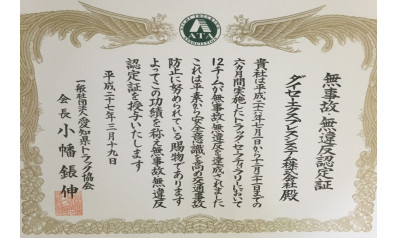 無事故・無違反認定証
ダイセーエクスプレスシステム株式会社 殿
貴社は平成二六年七月一日から十二月三十一日までの
六カ月間実施したトラックセーフティラリーにおいて
12チームが無事故無違反を達成されました
これは平素から安全意識を高め交通事故
防止に努められている賜物であります
よってこの功績を称え無事故無違反
認定証を授与いたします
平成二十七年三月十九日
一般社団法人愛知県トラック協会
会長 小幡鋹伸
ATA